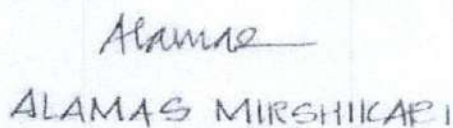 Alamas
ALAMAS MIRSHIKARI